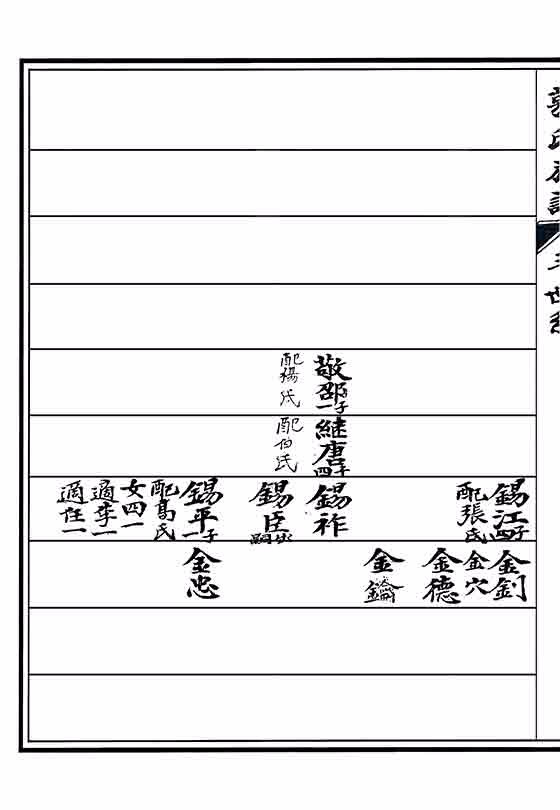 世
敬邵子一
配楊氏
継唐子四
配伯氏
錫江子四
配張氏
錫祚
錫臣出嗣
錫平子一
配髙氏
女四一
適李一
適任一
金釗
金穴
金德
金鑰
金忠